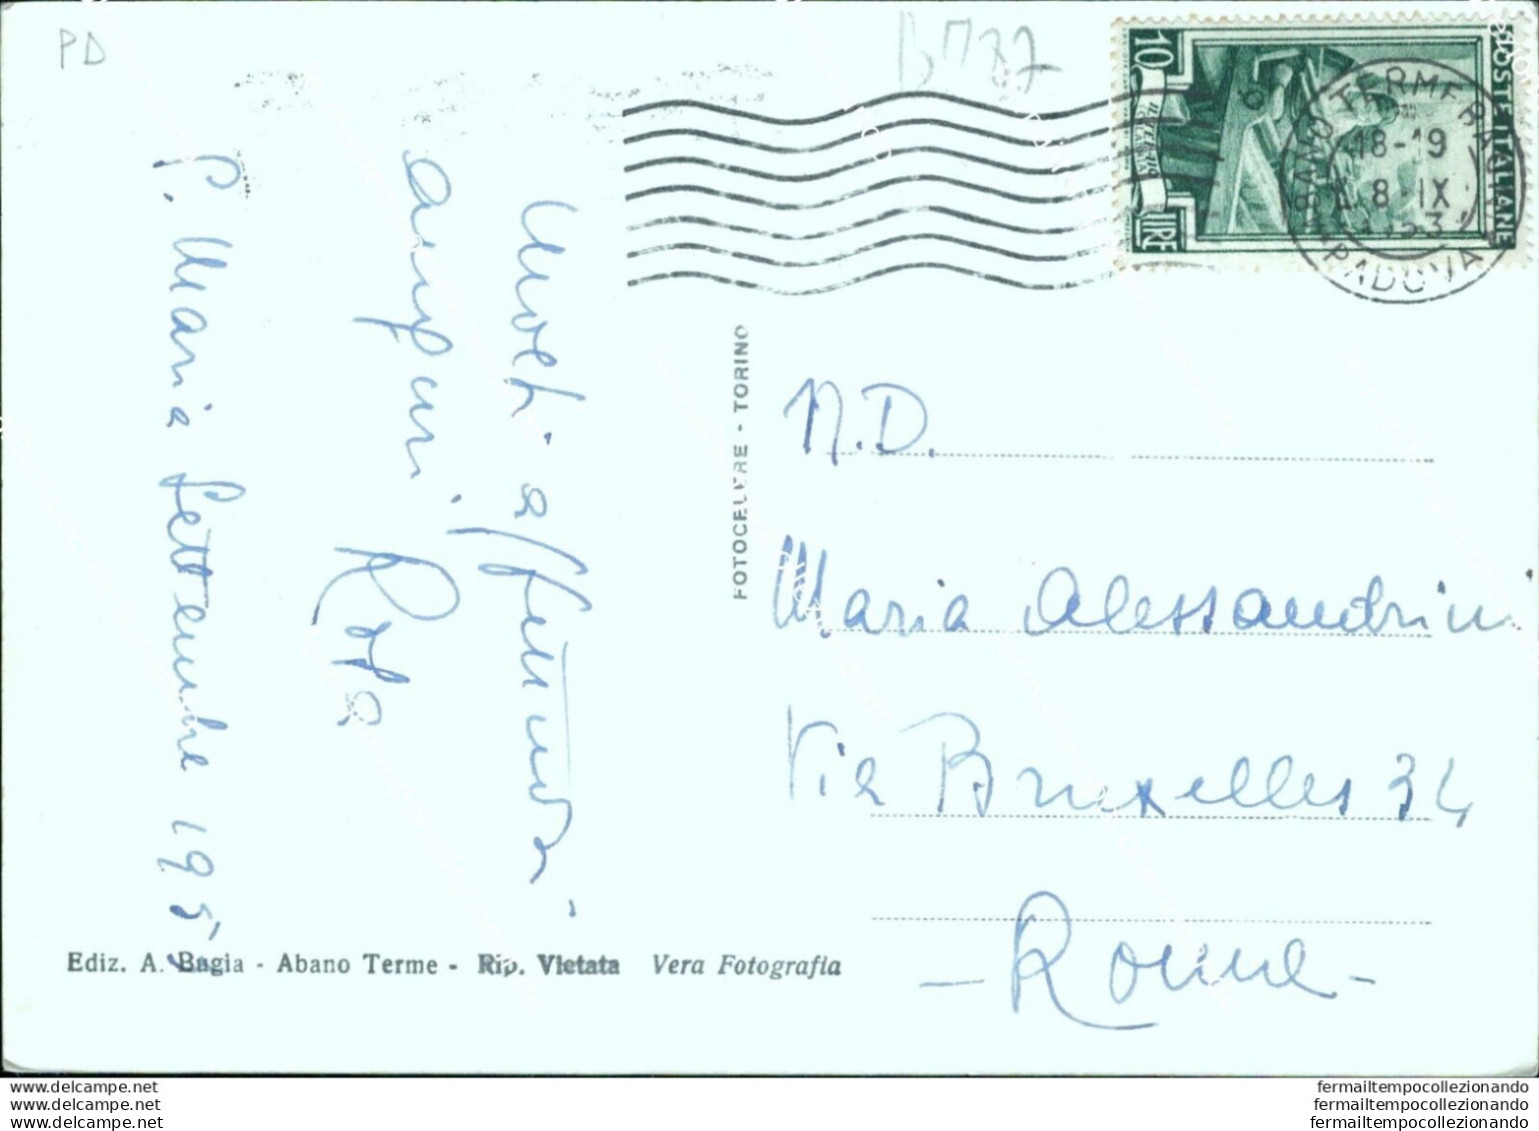 PD
B787
10
LIRE
POSTE ITALIANE
ABANO TERME BAGNI
18-19
8 · IX
1953
PADOVA
affettuosi
auguri.
S. Maria Settembre 195
FOTOCELERE - TORINO
N.D.
Maria Alessandrini
Via Bruxelles 34
- Roma -
Ediz. A. Bagia - Abano Terme - Rip. Vietata Vera Fotografia
www.delcampe.net
www.delcampe.net
www.delcampe.net
fermailtempocollezionando
fermailtempocollezionando
fermailtempocollezionando